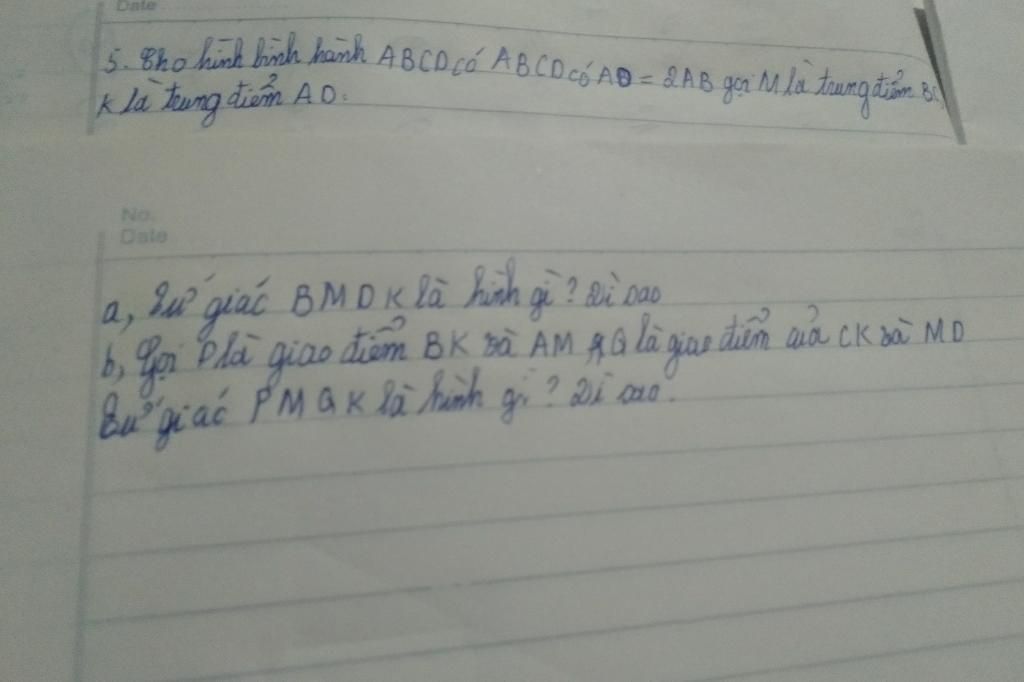 Date
5. Cho hình bình hành ABCD có ABCD có AD = 2AB gọi M là trung điểm BC,
K là trung điểm AD.
No.
Date
a, Tứ giác BMDK là hình gì? Vì sao
b, Gọi P là giao điểm BK và AM, Q là giao điểm của CK và MD
Tứ giác PMQK là hình gì? Vì sao.